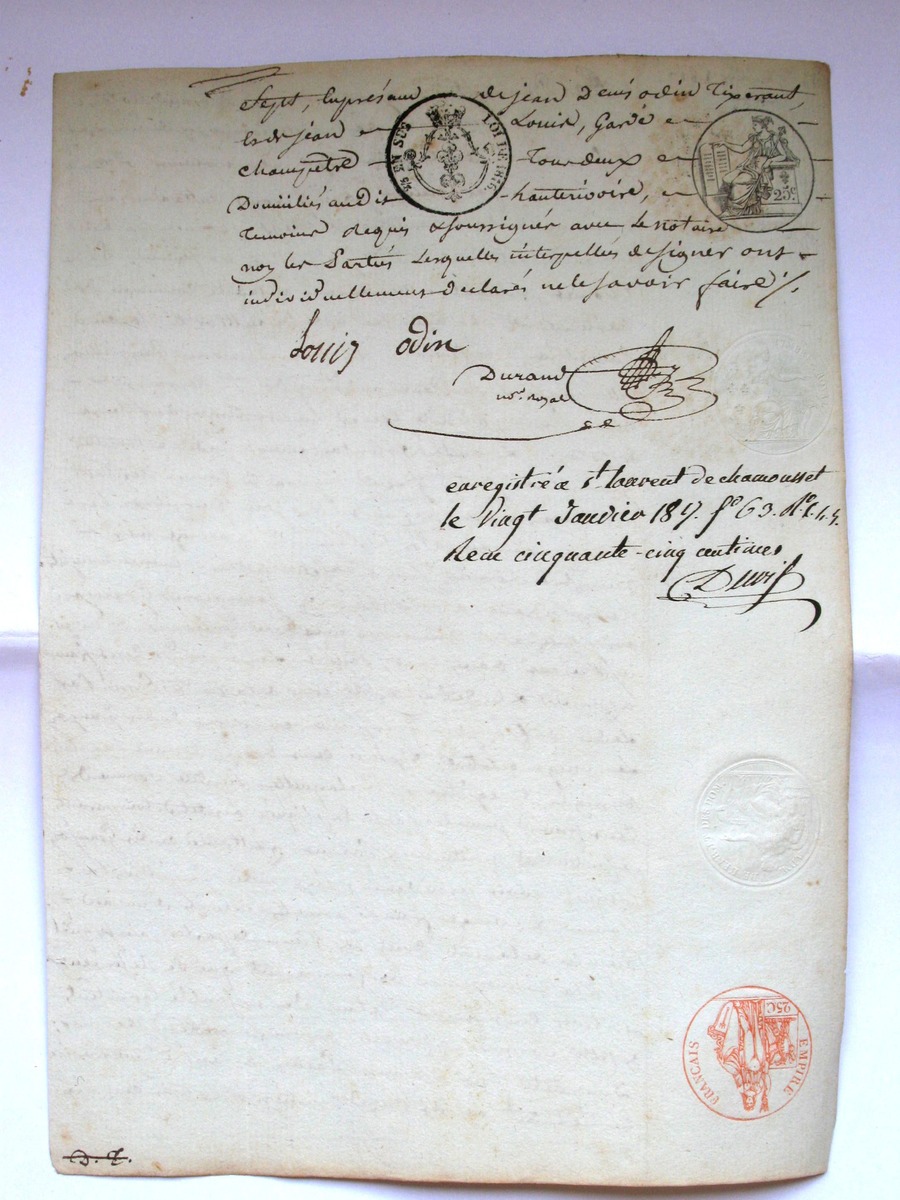 Sept, en présence de jean Denis odin Tixerant,
et de jean Louis, Garde
champetre Tous deux
Domiciliés audit hauterivoire,
Temoins requis & soussignés avec le notaire
non les Parties Lesquelles interpellés de signer ont
individuellement declarés ne le savoir faire /.
25 EN SUS
LOI DE 1816
25 c
Louis odin
Durand
not. royal
enregistré a St. laurent de chamousset
le Vingt Janvier 1817. fo 63. Ro
Recu cinquante-cinq centimes
EMPIRE FRANÇAIS
25C
D. T.